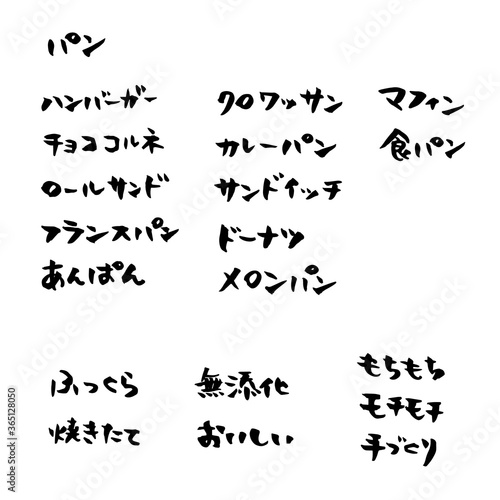 パン
ハンバーガー
クロワッサン
マフィン
チョココルネ
カレーパン
食パン
ロールサンド
サンドイッチ
フランスパン
ドーナツ
あんぱん
メロンパン
ふっくら
無添化
もちもち
モチモチ
焼きたて
おいしい
手づくり
Adobe Stock | #365128050